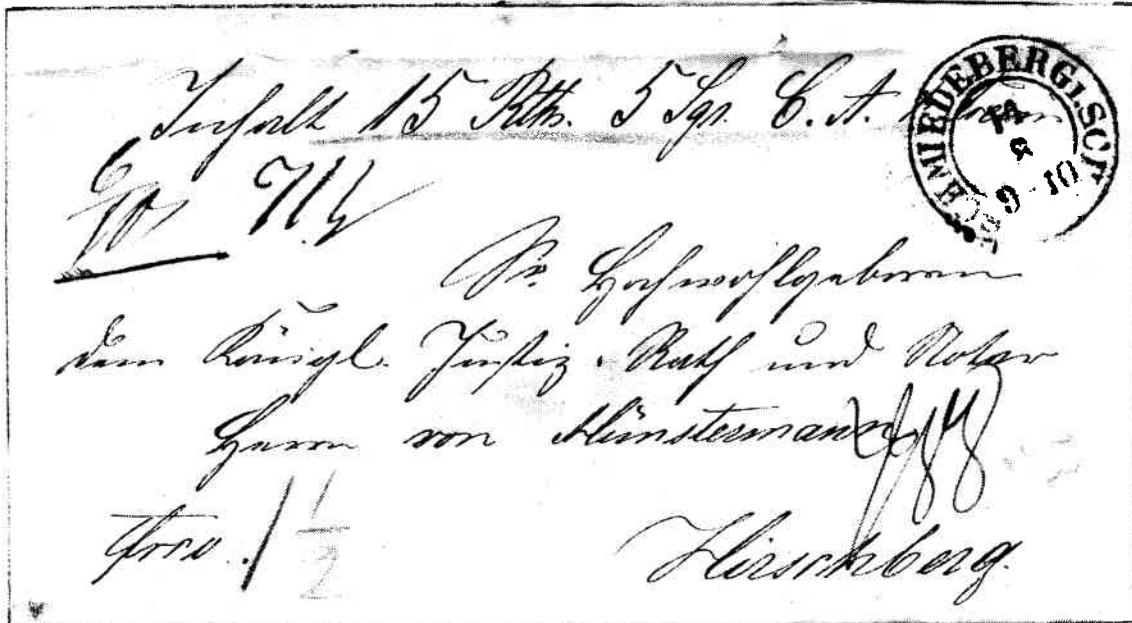 Inhalt 15 Rth. 5 Sgr. C. A.
SCHMIEDEBERG I. SCHL
9-10
Sr. Hochwohlgeboren
dem Königl. Justiz-Rath und Notar
Herrn von Münstermann
frco. 1 1/2
Hirschberg.